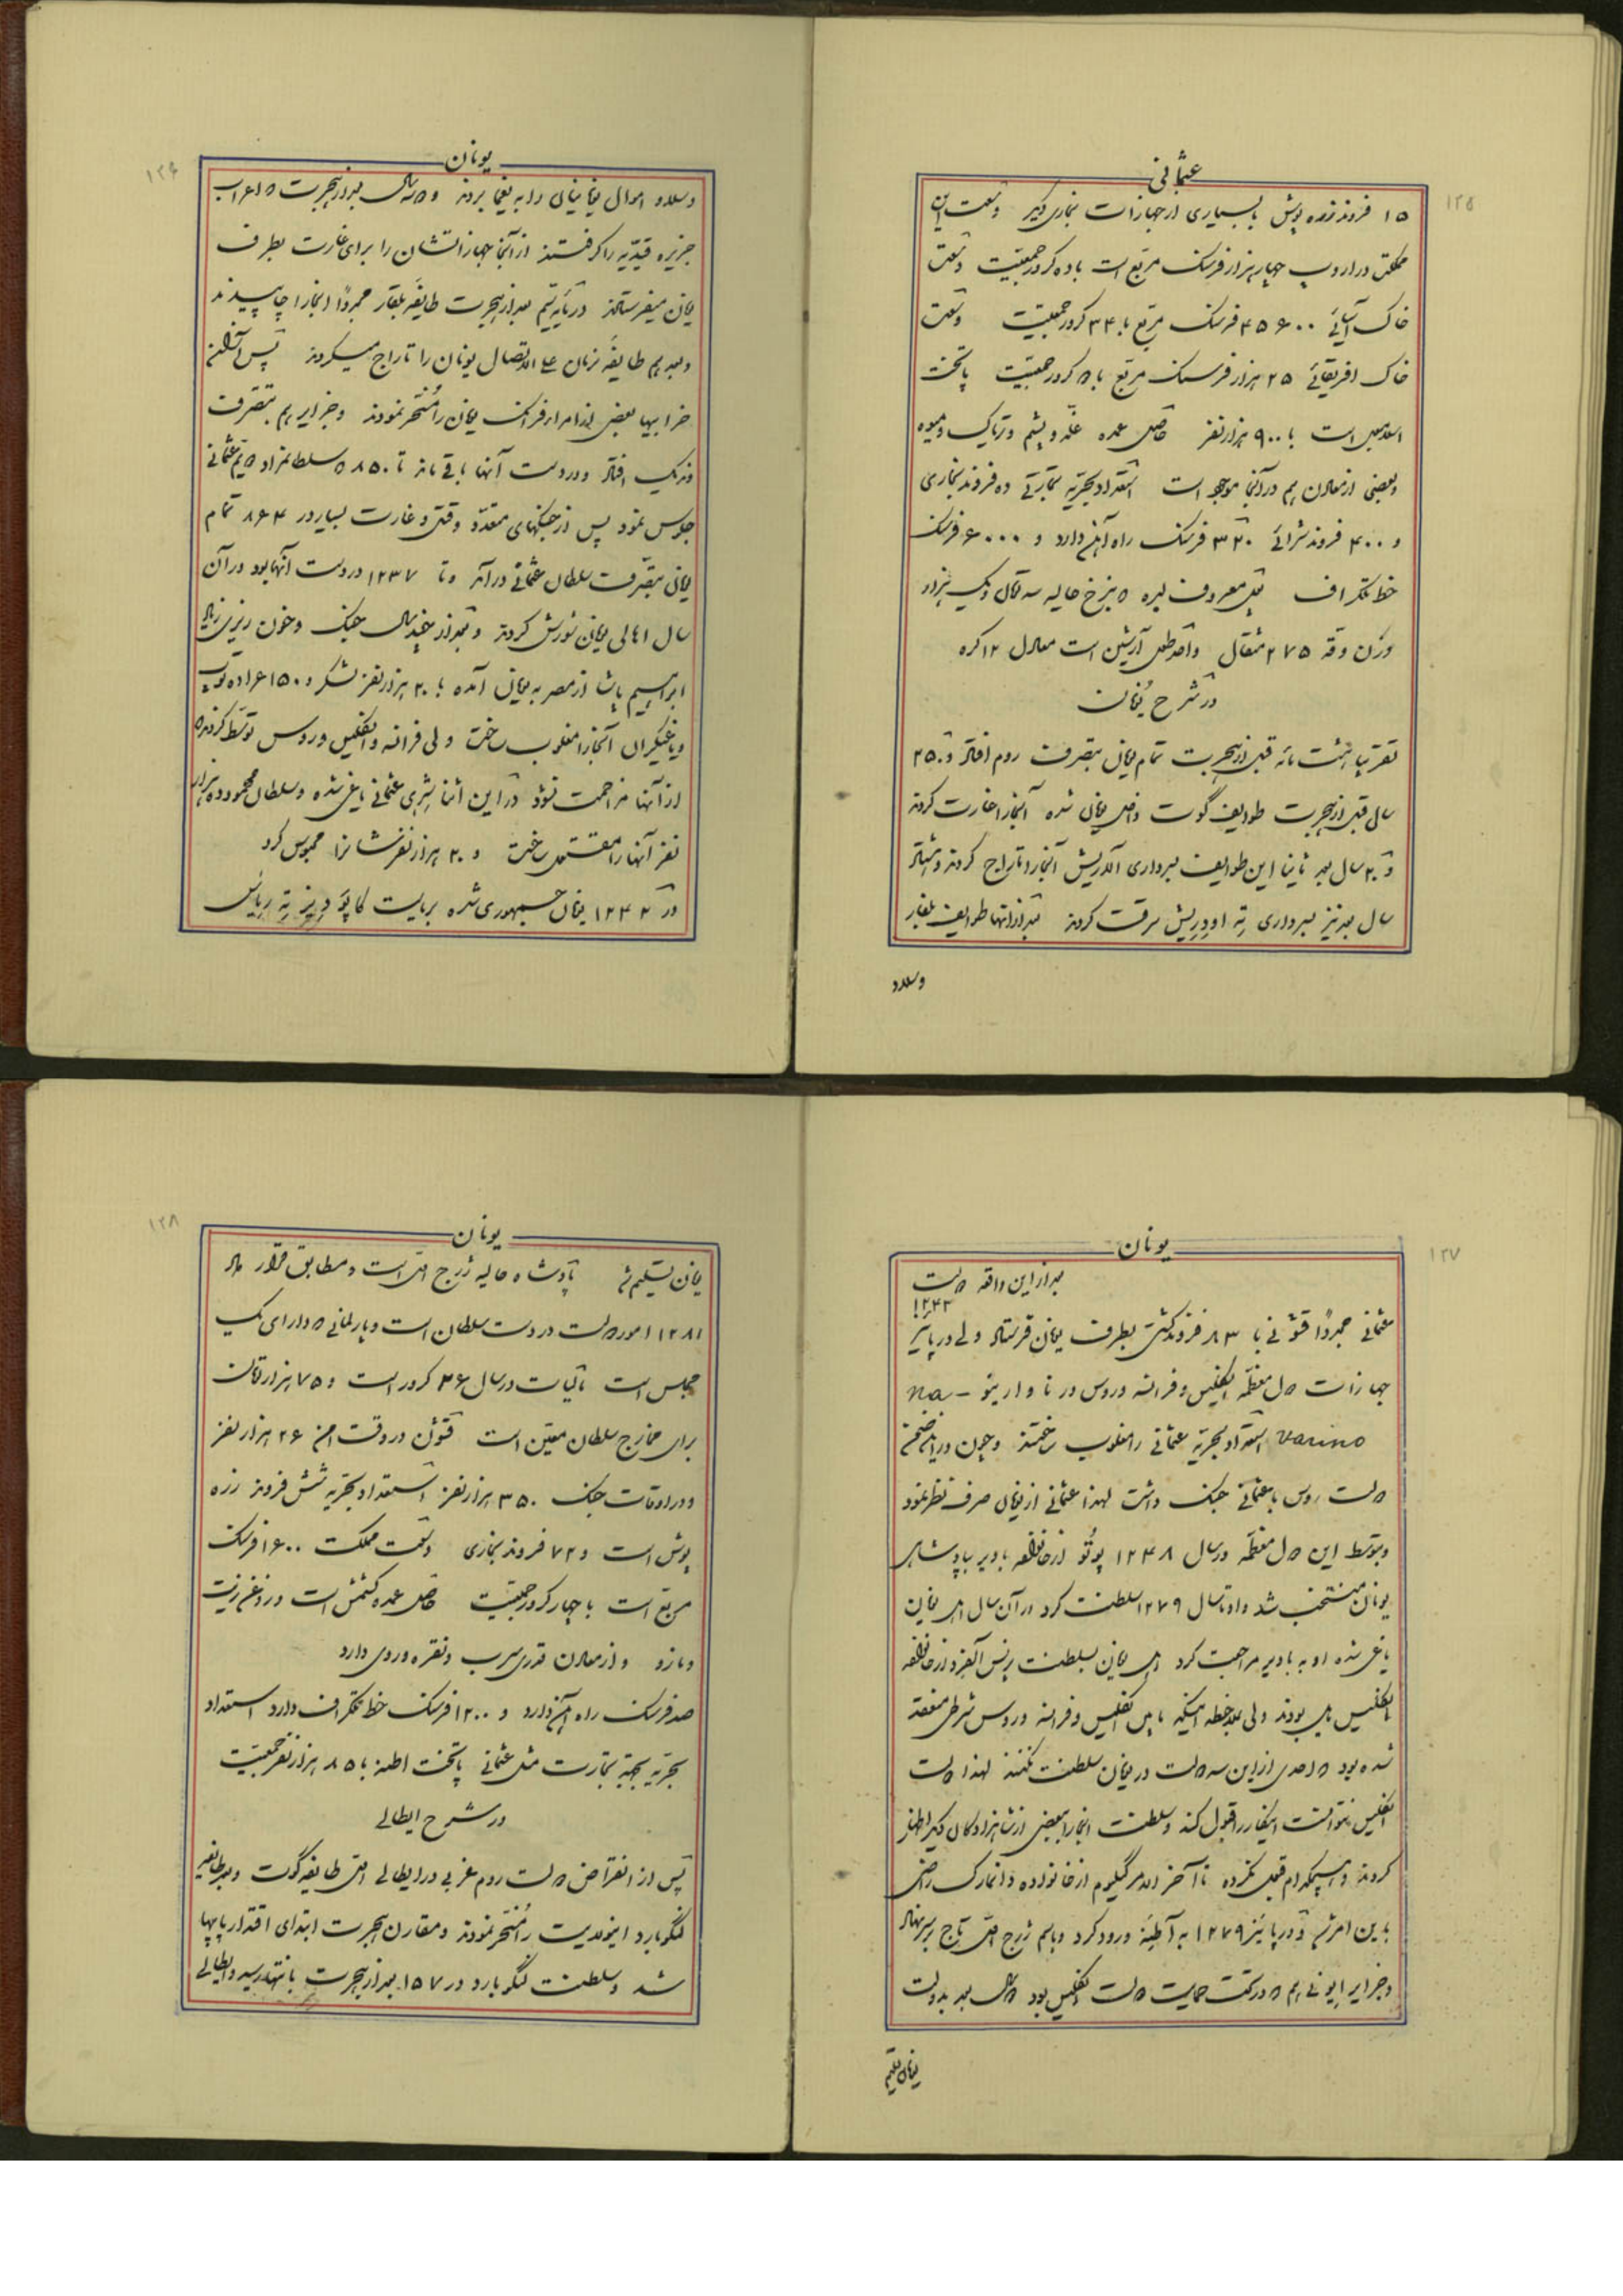 ۱۲۵
عثمانی
۱۵ فروند زره پوش با بسیاری از جهازات بخاری دیگر وسعت این
مملکت در اروپ چهار هزار فرسنک مربع است با ده کرور جمعیت وسعت
خاک آسیائی ۴۵۶۰۰ فرسنک مربع با ۳۴ کرور جمعیت وسعت
خاک افریقائی ۲۵ هزار فرسنک مربع با کرور جمعیت پایتخت
اسلامبول است با ۹۰۰ هزار نفر حاصل عمده غله و پشم و تریاک و میوه
و بعضی از معادن هم در آنجا موجود است استعداد بحریه تجارتی ده فروند بخاری
و ۴۰۰ فروند شراعی ۳۲۰ فرسنک راه آهن دارد و ۶۰۰۰ فرسنک
خط تلگراف پول معروف لیره بنرخ حالیه سه تومان و یک هزار
وزن وقه ۲۷۵ مثقال واحد طول آرشین است معادل ۱۲ کره
در شرح یونان
تقریبا هشت مائه قبل از هجرت تمام یونان بتصرف روم افتاد و ۲۵۰
سال قبل از هجرت طوایف گوت داخل یونان شده آنجا را غارت کردند
و ۲۰ سال بعد ثانیا این طوایف بسرداری آلاریش آنجا را تاراج کردند و هشتاد
سال بعد نیز بسرداری ته اودریش سرقت کردند بعد از آنها طوایف بلغار
وسلاو
۱۲۶
یونان
وسلاو اموال یونانیان را به یغما بردند و سال بعد از هجرت اعراب
جزیره قندیه را گرفتند از آنجا جهازاتشان را برای غارت بطرف
یونان میفرستادند در مائه سیم بعد از هجرت طایفه بلغار مجددا آنجا را چاپیدند
و بعد هم طایفه نرمان علی الاتصال یونان را تاراج میکردند پس از آن
خرابیها بعضی از امراء فرانک یونان را مسخر نمودند و جزایر هم بتصرف
ونیک افتاد و در دست آنها باقی ماند تا ۸۵۰ سلطان مراد دویم عثمانی
جلوس نمود پس از جنگهای متعدد و قتل و غارت بسیار در ۸۶۴ تمام
یونان بتصرف سلطان عثمانی در آمد و تا ۱۲۳۷ در دست آنها بود در آن
سال اهالی یونان شورش کردند و بعد از چند سال جنک و خون ریزی زیاد
ابراهیم پاشا از مصر به یونان آمده با ۲۰ هزار نفر لشکر و ۱۵۰ عراده توپ
و یاغیگران آنجا را مغلوب ساخت ولی فرانسه و انگلیس و روس توسط کردند
از آنها مزاحمت نشود در این اثنا ینگچری عثمانی یاغی شده و سلطان محمود ده هزار
نفر آنها را مقتول ساخت و ۲۰ هزار نفرشانرا محبوس کرد
در ۱۲۴۲ یونان جمهوری شده بریاست کاپو دیستریه ریاس
۱۲۷
یونان
بعد از این واقعه دولت
۱۲۴۳
عثمانی مجددا قشونی با ۸۳ فروند کشتی بطرف یونان فرستاد ولی در پائیز
جهازات دول معظمه انگلیس و فرانسه و روس در ناوارینو na-
varino استعداد بحریه عثمانی را مغلوب ساختند و چون در این ضمن
دولت روس با عثمانی جنک داشت لهذا عثمانی از یونان صرف نظر نمود
و بتوسط این دول معظمه در سال ۱۲۴۸ پوتو از خانواده باویر بپادشاهی
یونان منتخب شد و او تا سال ۱۲۷۹ سلطنت کرد در آن سال اهل یونان
یاغی شده او به باویر مراجعت کرد اهل یونان بسلطنت پرنس آلفرد از خانواده
انگلیس مایل بودند ولی بملاحظه اینکه مابین انگلیس و فرانسه و روس شرطی منعقد
شده بود که احدی از این سه دولت در یونان سلطنت نکنند لهذا دولت
انگلیس نتوانست اینکار را قبول کند و سلطنت آنجا را ببعضی از شاهزادگان دیگر اظهار
کردند و هیچکدام قبول نکرده تا آخر الامر گیلیوم از خانواده دانمارک راضی
باین امر شد و در پائیز ۱۲۷۹ به آطینه ورود کرد و باسم ژرج اول تاج بر سر نهاد
و جزایر ایونی هم که در تحت حمایت دولت انگلیس بود سال بعد بدولت
یونان تسلیم
۱۲۸
یونان
یونان تسلیم شد پادشاه حالیه ژرج اول است و مطابق قرار داد
۱۲۸۱ امور دولت در دست سلطان است و پارلمانی که دارای یک
مجلس است مالیات در سال ۲۶ کرور است و ۷۵ هزار تومان
برای مخارج سلطان معین است قشون در وقت امن ۲۶ هزار نفر
و در اوقات جنک ۳۵۰ هزار نفر استعداد بحریه شش فروند زره
پوش است و ۷۲ فروند بخاری وسعت مملکت ۱۶۰۰ فرسنک
مربع است با چهار کرور جمعیت حاصل عمده کشمش است و روغن زیت
و مازو و از معادن قدری سرب و نقره و روی دارد
صد فرسنک راه آهن دارد و ۱۲۰۰ فرسنک خط تلگراف دارد استعداد
بحریه بجهة تجارت مثل عثمانی پایتخت اطنه با ۸۵ هزار نفر جمعیت
در شرح ایطالی
پس از انقراض دولت روم غربی در ایطالی اول طایفه گوت و بعد طایفه
لنگوبارد اینولایت را مسخر نمودند و مقارن هجرت ابتدای اقتدار پاپها
شد و سلطنت لنگوبارد در ۱۵۷ بعد از هجرت بانتها رسید و ایطالی